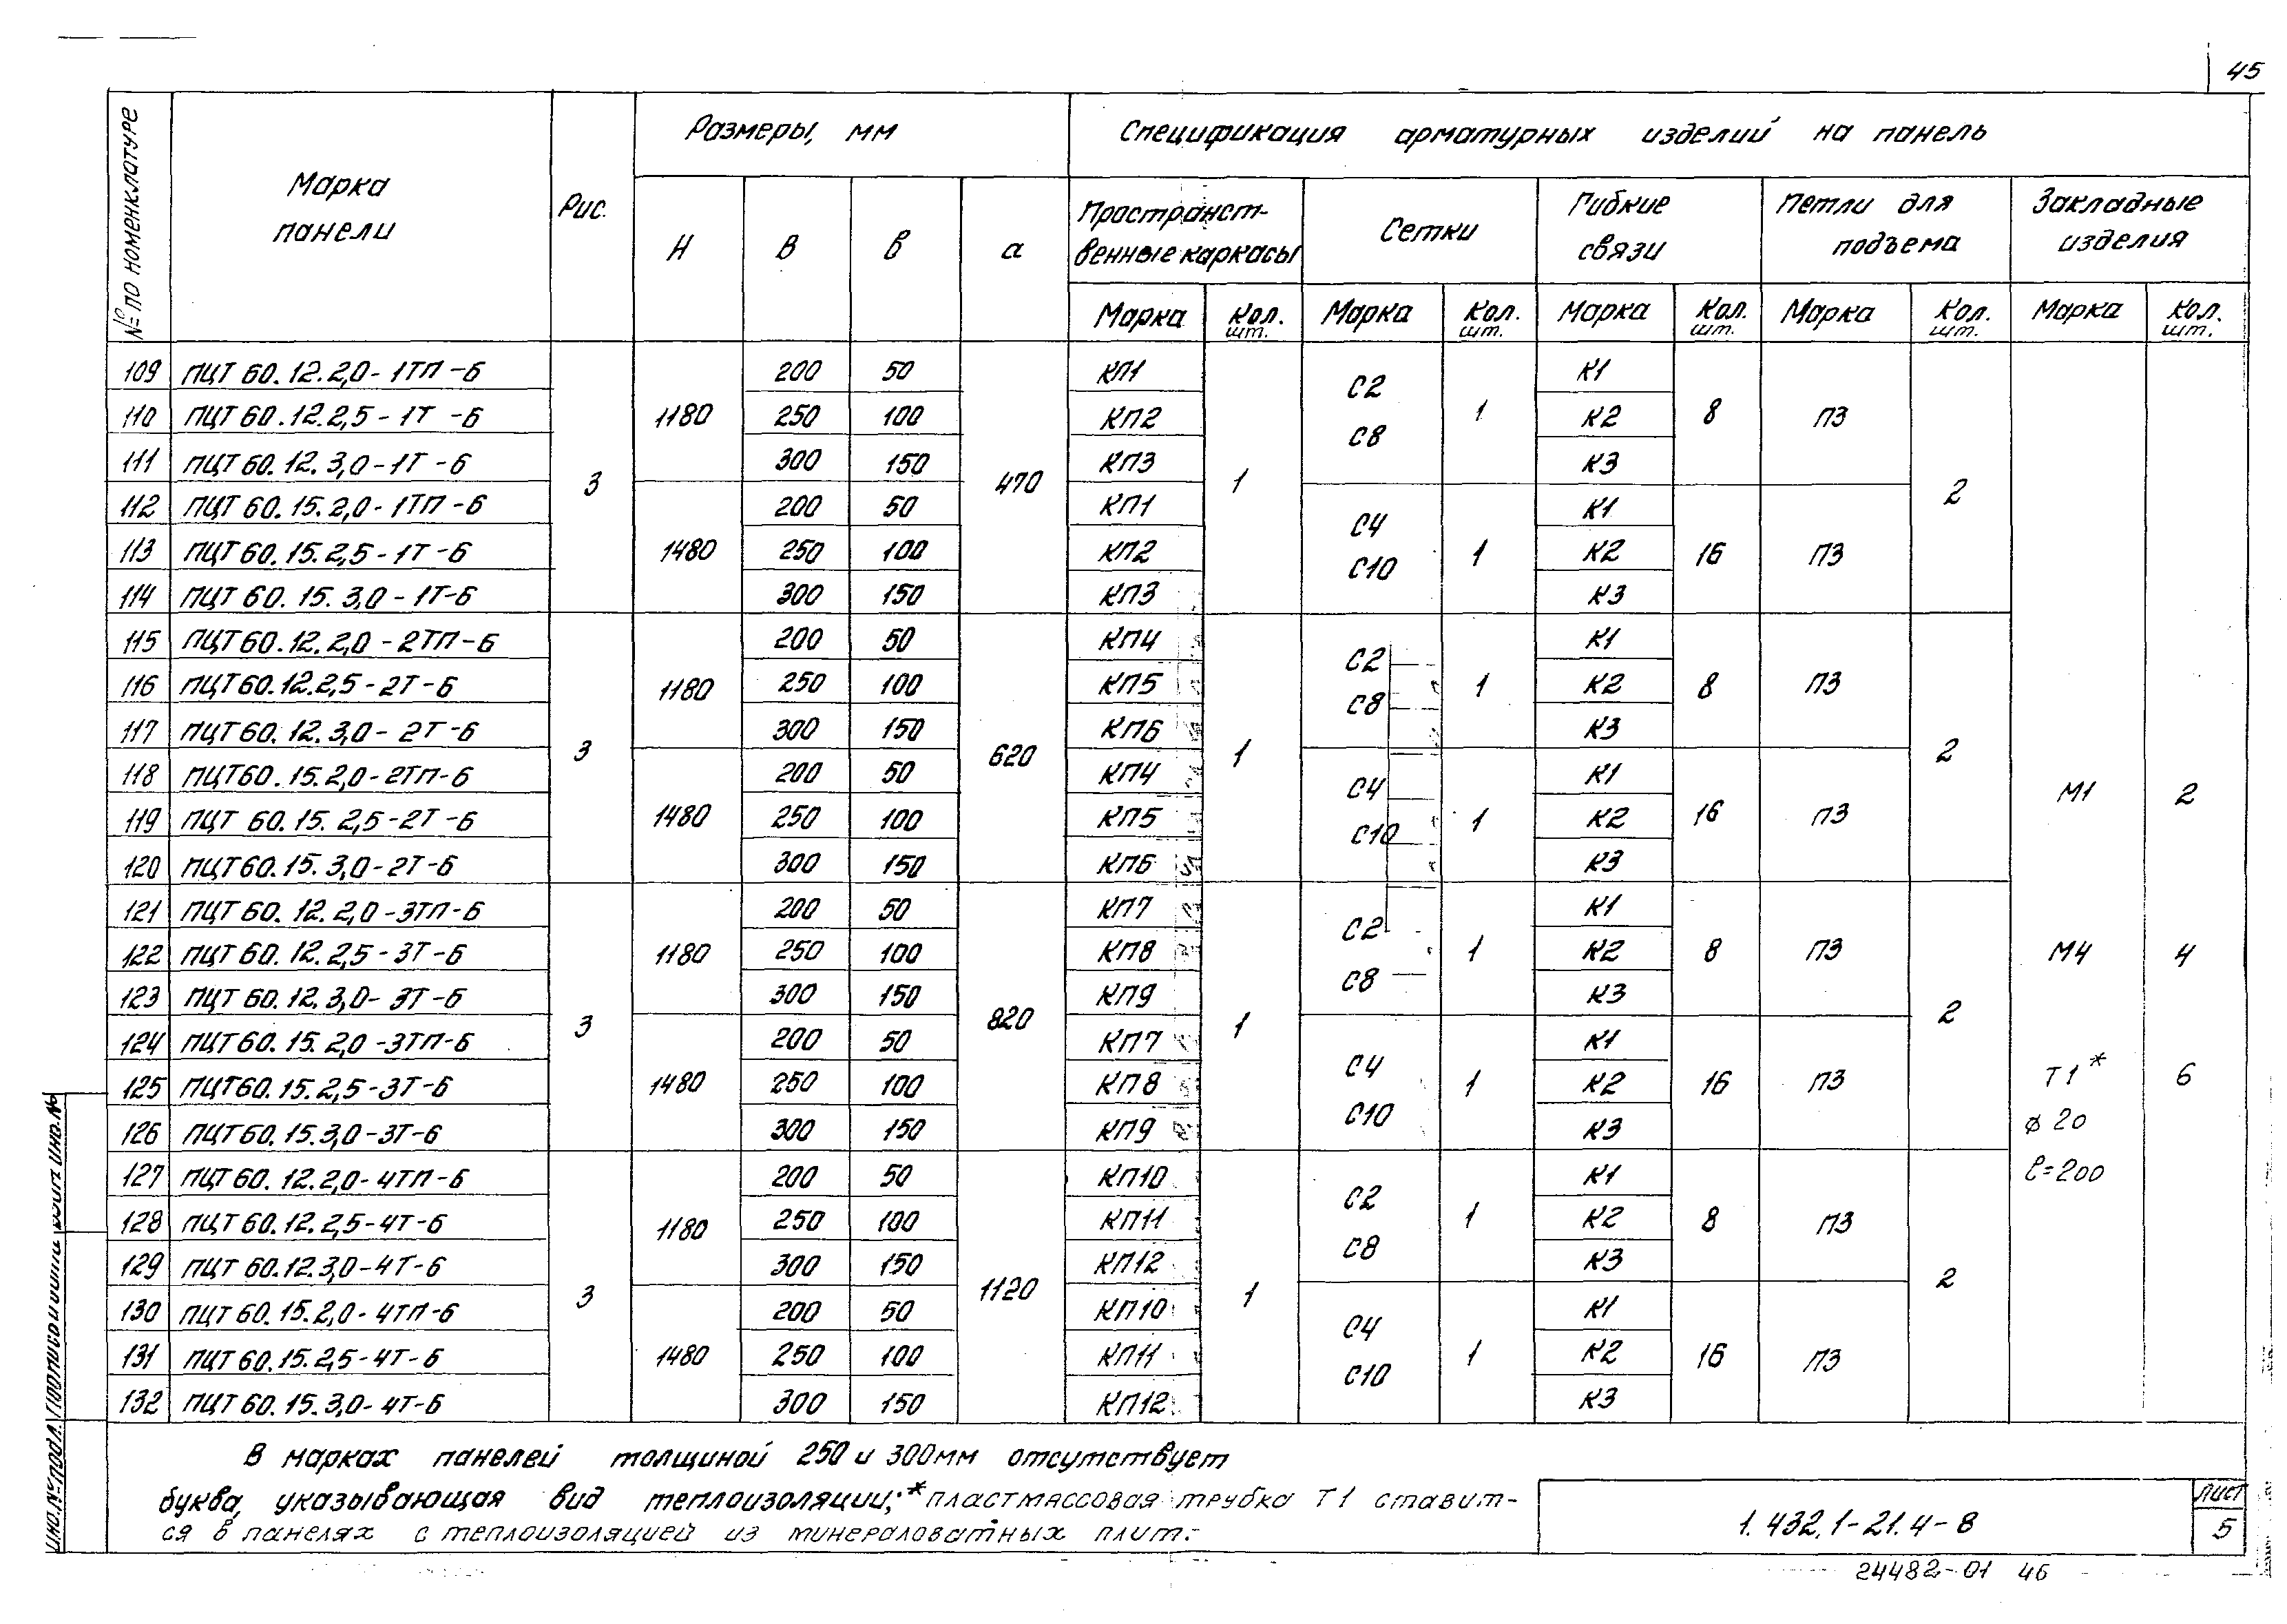 45
№ по номенклатуре
Марка панели
Рис.
Размеры, мм
Спецификация арматурных изделий на панель
Н В в а
Пространст-
венные каркасы
Сетки
Гибкие связи
Петли для подъема
Закладные изделия
Марка Кол. шт. Марка Кол. шт. Марка Кол. шт. Марка Кол. шт. Марка Кол. шт.
109 ПЦТ 60.12.2,0-1ТП-6 3 1180 200 50 470 КП1 1 С2 С8 1 К1 8 П3 2
110 ПЦТ 60.12.2,5-1Т-6 250 100 КП2 К2
111 ПЦТ 60.12.3,0-1Т-6 300 150 КП3 К3
112 ПЦТ 60.15.2,0-1ТП-6 1480 200 50 КП1 С4 С10 1 К1 16 П3
113 ПЦТ 60.15.2,5-1Т-6 250 100 КП2 К2
114 ПЦТ 60.15.3,0-1Т-6 300 150 КП3 К3
115 ПЦТ 60.12.2,0-2ТП-6 3 1180 200 50 620 КП4 1 С2 С8 1 К1 8 П3 2
116 ПЦТ 60.12.2,5-2Т-6 250 100 КП5 К2
117 ПЦТ 60.12.3,0-2Т-6 300 150 КП6 К3
118 ПЦТ 60.15.2,0-2ТП-6 1480 200 50 КП4 С4 С10 1 К1 16 П3 М1 2
119 ПЦТ 60.15.2,5-2Т-6 250 100 КП5 К2
120 ПЦТ 60.15.3,0-2Т-6 300 150 КП6 К3
121 ПЦТ 60.12.2,0-3ТП-6 3 1180 200 50 820 КП7 1 С2 С8 1 К1 8 П3 2
122 ПЦТ 60.12.2,5-3Т-6 250 100 КП8 К2 М4 4
123 ПЦТ 60.12.3,0-3Т-6 300 150 КП9 К3
124 ПЦТ 60.15.2,0-3ТП-6 1480 200 50 КП7 С4 С10 1 К1 16 П3
125 ПЦТ 60.15.2,5-3Т-6 250 100 КП8 К2 Т1* 6
126 ПЦТ 60.15.3,0-3Т-6 300 150 КП9 К3 ф20
127 ПЦТ 60.12.2,0-4ТП-6 3 1180 200 50 1120 КП10 1 С2 С8 1 К1 8 П3 2 ℓ=200
128 ПЦТ 60.12.2,5-4Т-6 250 100 КП11 К2
129 ПЦТ 60.12.3,0-4Т-6 300 150 КП12 К3
130 ПЦТ 60.15.2,0-4ТП-6 1480 200 50 КП10 С4 С10 1 К1 16 П3
131 ПЦТ 60.15.2,5-4Т-6 250 100 КП11 К2
132 ПЦТ 60.15.3,0-4Т-6 300 150 КП12 К3
В марках панелей толщиной 250 и 300мм отсутствует
буква, указывающая вид теплоизоляции; *пластмассовая трубка Т1 ставит-
ся в панелях с теплоизоляцией из минераловатных плит.
1.432.1-21.4-8
Лист
5
24482-01 46
Инв.№ подл. Подпись и дата Взам. инв.№